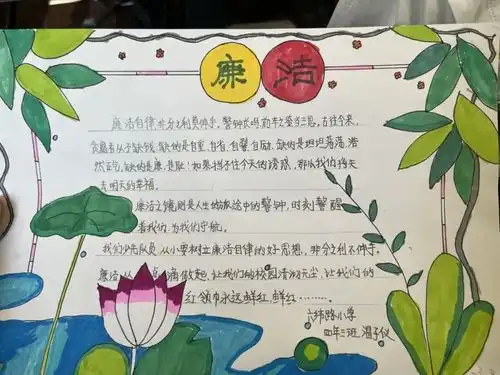 廉洁
廉洁自律非分之利莫伸手，警钟长鸣
古往今来，
贪腐者从不缺钱，缺的是自重、自省、自警、自励，缺的是坦坦荡荡、浩
然正气，缺的是廉，是耻！如果挡不住今天的诱惑，那么我们将失
去明天的幸福。
廉洁之镜，则是人生的旅途中的警钟，时刻警醒
着我们，为我们守航。
我们少先队员，从小要树立廉洁自律的好思想，非分之利不伸手。
廉洁，从点滴做起，让我们的校园清澈无尘，让我们的
红领巾永远鲜红，鲜红………。
六纬路小学
四年三班